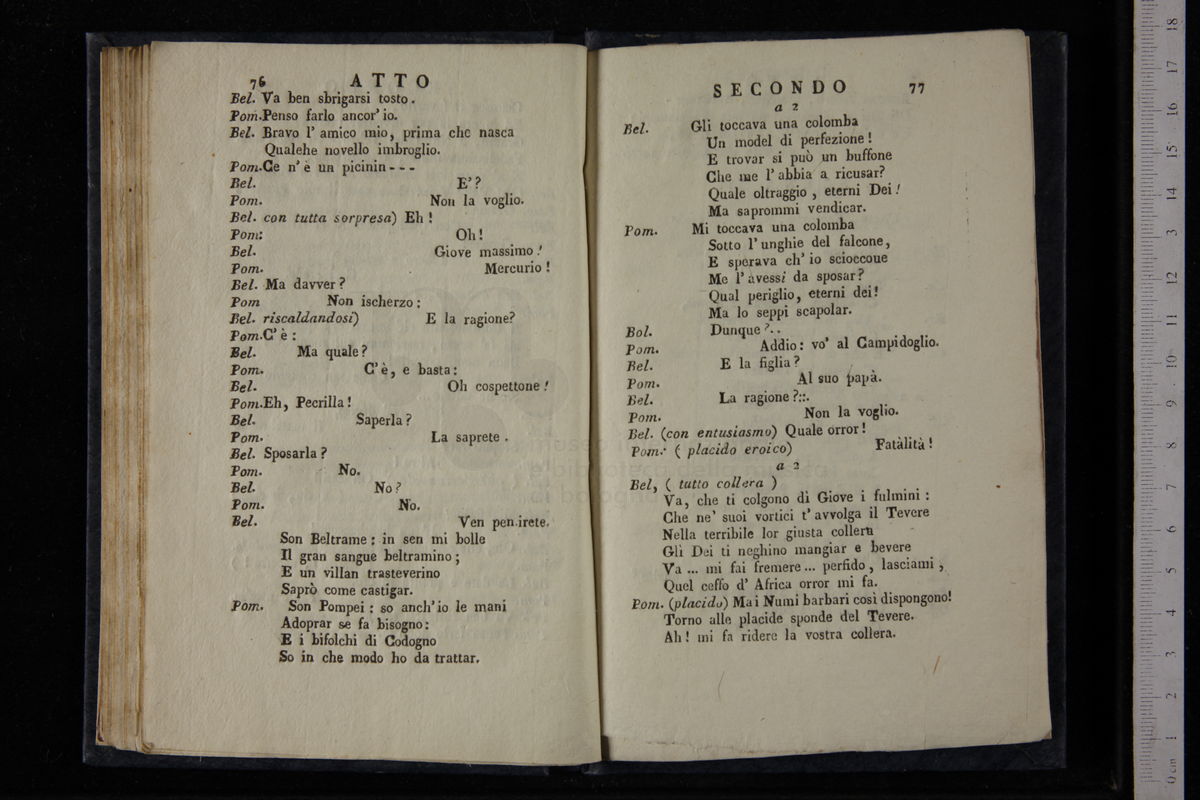 76 ATTO
Bel. Va ben sbrigarsi tosto.
Pom.Penso farlo ancor' io.
Bel. Bravo l' amico mio, prima che nasca
Qualehe novello imbroglio.
Pom.Ce n' è un picinin - - -
Bel. E' ?
Pom. Non la voglio.
Bel. con tutta sorpresa) Eh !
Pom: Oh !
Bel. Giove massimo !
Pom. Mercurio !
Bel. Ma davver ?
Pom Non ischerzo :
Bel. riscaldandosi) E la ragione?
Pom.C' è :
Bel. Ma quale ?
Pom. C' è, e basta :
Bel. Oh cospettone !
Pom.Eh, Pecrilla !
Bel. Saperla ?
Pom. La saprete .
Bel. Sposarla ?
Pom. No.
Bel. No ?
Pom. No.
Bel. Ven pen.irete.
Son Beltrame : in sen mi bolle
Il gran sangue beltramino ;
E un villan trasteverino
Saprò come castigar.
Pom. Son Pompei : so anch' io le mani
Adoprar se fa bisogno :
E i bifolchi di Codogno
So in che modo ho da trattar.
SECONDO 77
a 2
Bel. Gli toccava una colomba
Un model di perfezione !
E trovar si può un buffone
Che me l' abbia a ricusar?
Quale oltraggio , eterni Dei !
Ma saprommi vendicar.
Pom. Mi toccava una colomba
Sotto l' unghie del falcone,
E sperava ch' io scioccoue
Me l' avessi da sposar ?
Qual periglio, eterni dei !
Ma lo seppi scapolar.
Bol. Dunque ?. .
Pom. Addio : vo' al Campidoglio.
Bel. E la figlia ?
Pom. Al suo papà.
Bel. La ragione ?::.
Pom. Non la voglio.
Bel. (con entusiasmo) Quale orror !
Pom. ( placido eroico) Fatàlità !
a 2
Bel, ( tutto collera )
Va, che ti colgono di Giove i fulmini :
Che ne' suoi vortici t' avvolga il Tevere
Nella terribile lor giusta collera
Gli Dei ti neghino mangiar e bevere
Va ... mi fai fremere ... perfido , lasciami ,
Quel ceffo d' Africa orror mi fa.
Pom. (placido) Ma i Numi barbari così dispongono!
Torno alle placide sponde del Tevere.
Ah ! mi fa ridere la vostra collera.
0 cm 1 2 3 4 5 6 7 8 9 10 11 12 13 14 15 16 17 18